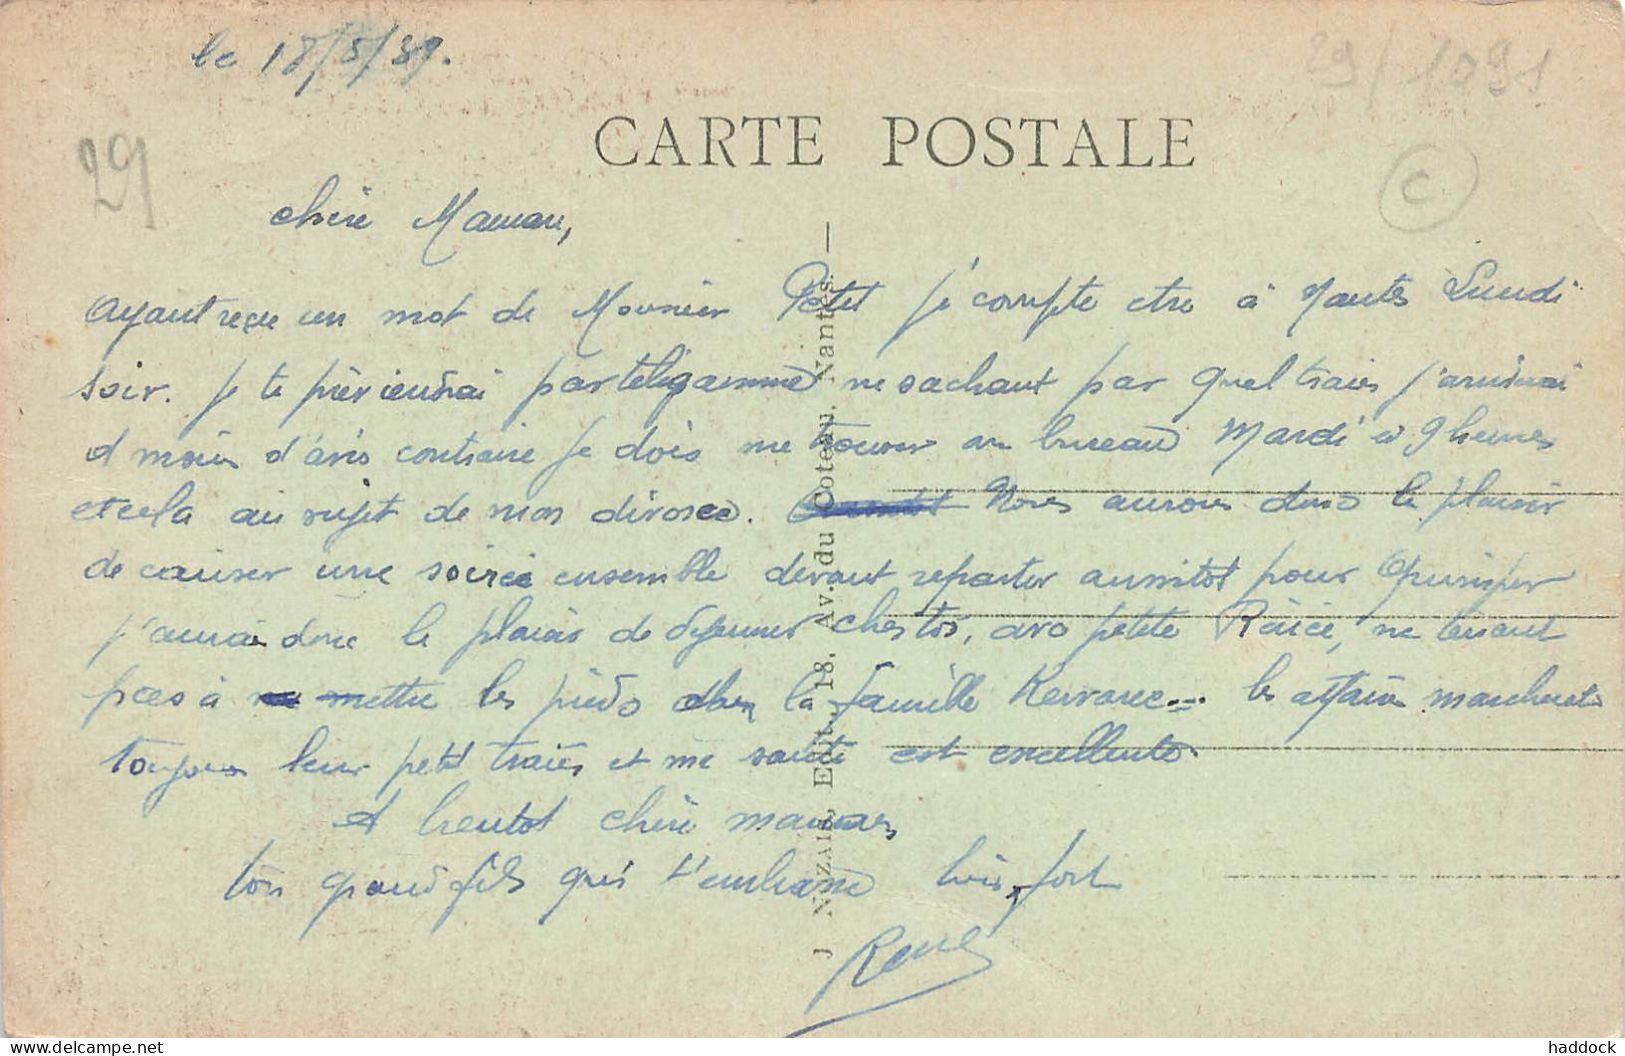 le 18/5/39.
29/1091
29
CARTE POSTALE
C
chère Maman,
Ayant reçu un mot de Petit je compte etre à Nantes Lundi
soir. Je te prèviendrai par teligamme ne sachant par quel train j'arriverai
A moin d'avis contraire je dois me trouver au bureau Mardi à 9 heures
et cela au sujet de mon divorce. Nous aurons donc le plaisir
de causer une soirée ensemble devant repartir aussitot pour Quimper
j'aurai donc le plaisir de dejeuner chez toi, avec petite ne tenant
pas à mettre les pieds chez la famille Kervarec... les affaires marchent
toujours leur petit train et me santé est excellente
A bientot chère maman
ton grand fils qui t'embrasse bien fort
René
J NOZAIS, Edit., 18, Av. du Coteau, Nantes. —
www.delcampe.net
haddock